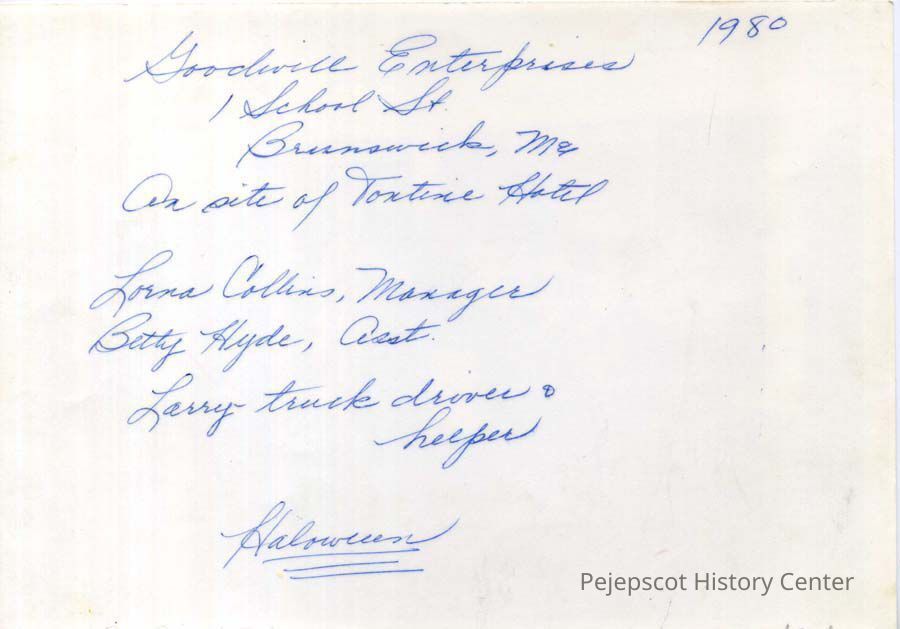 1980
Goodwill Enterprises
1 School St.
Brunswick, Me
On site of Tontine Hotel
Lorna Collins, Manager
Betty Hyde, Asst.
Larry - truck driver &
helper
Haloween
Pejepscot History Center